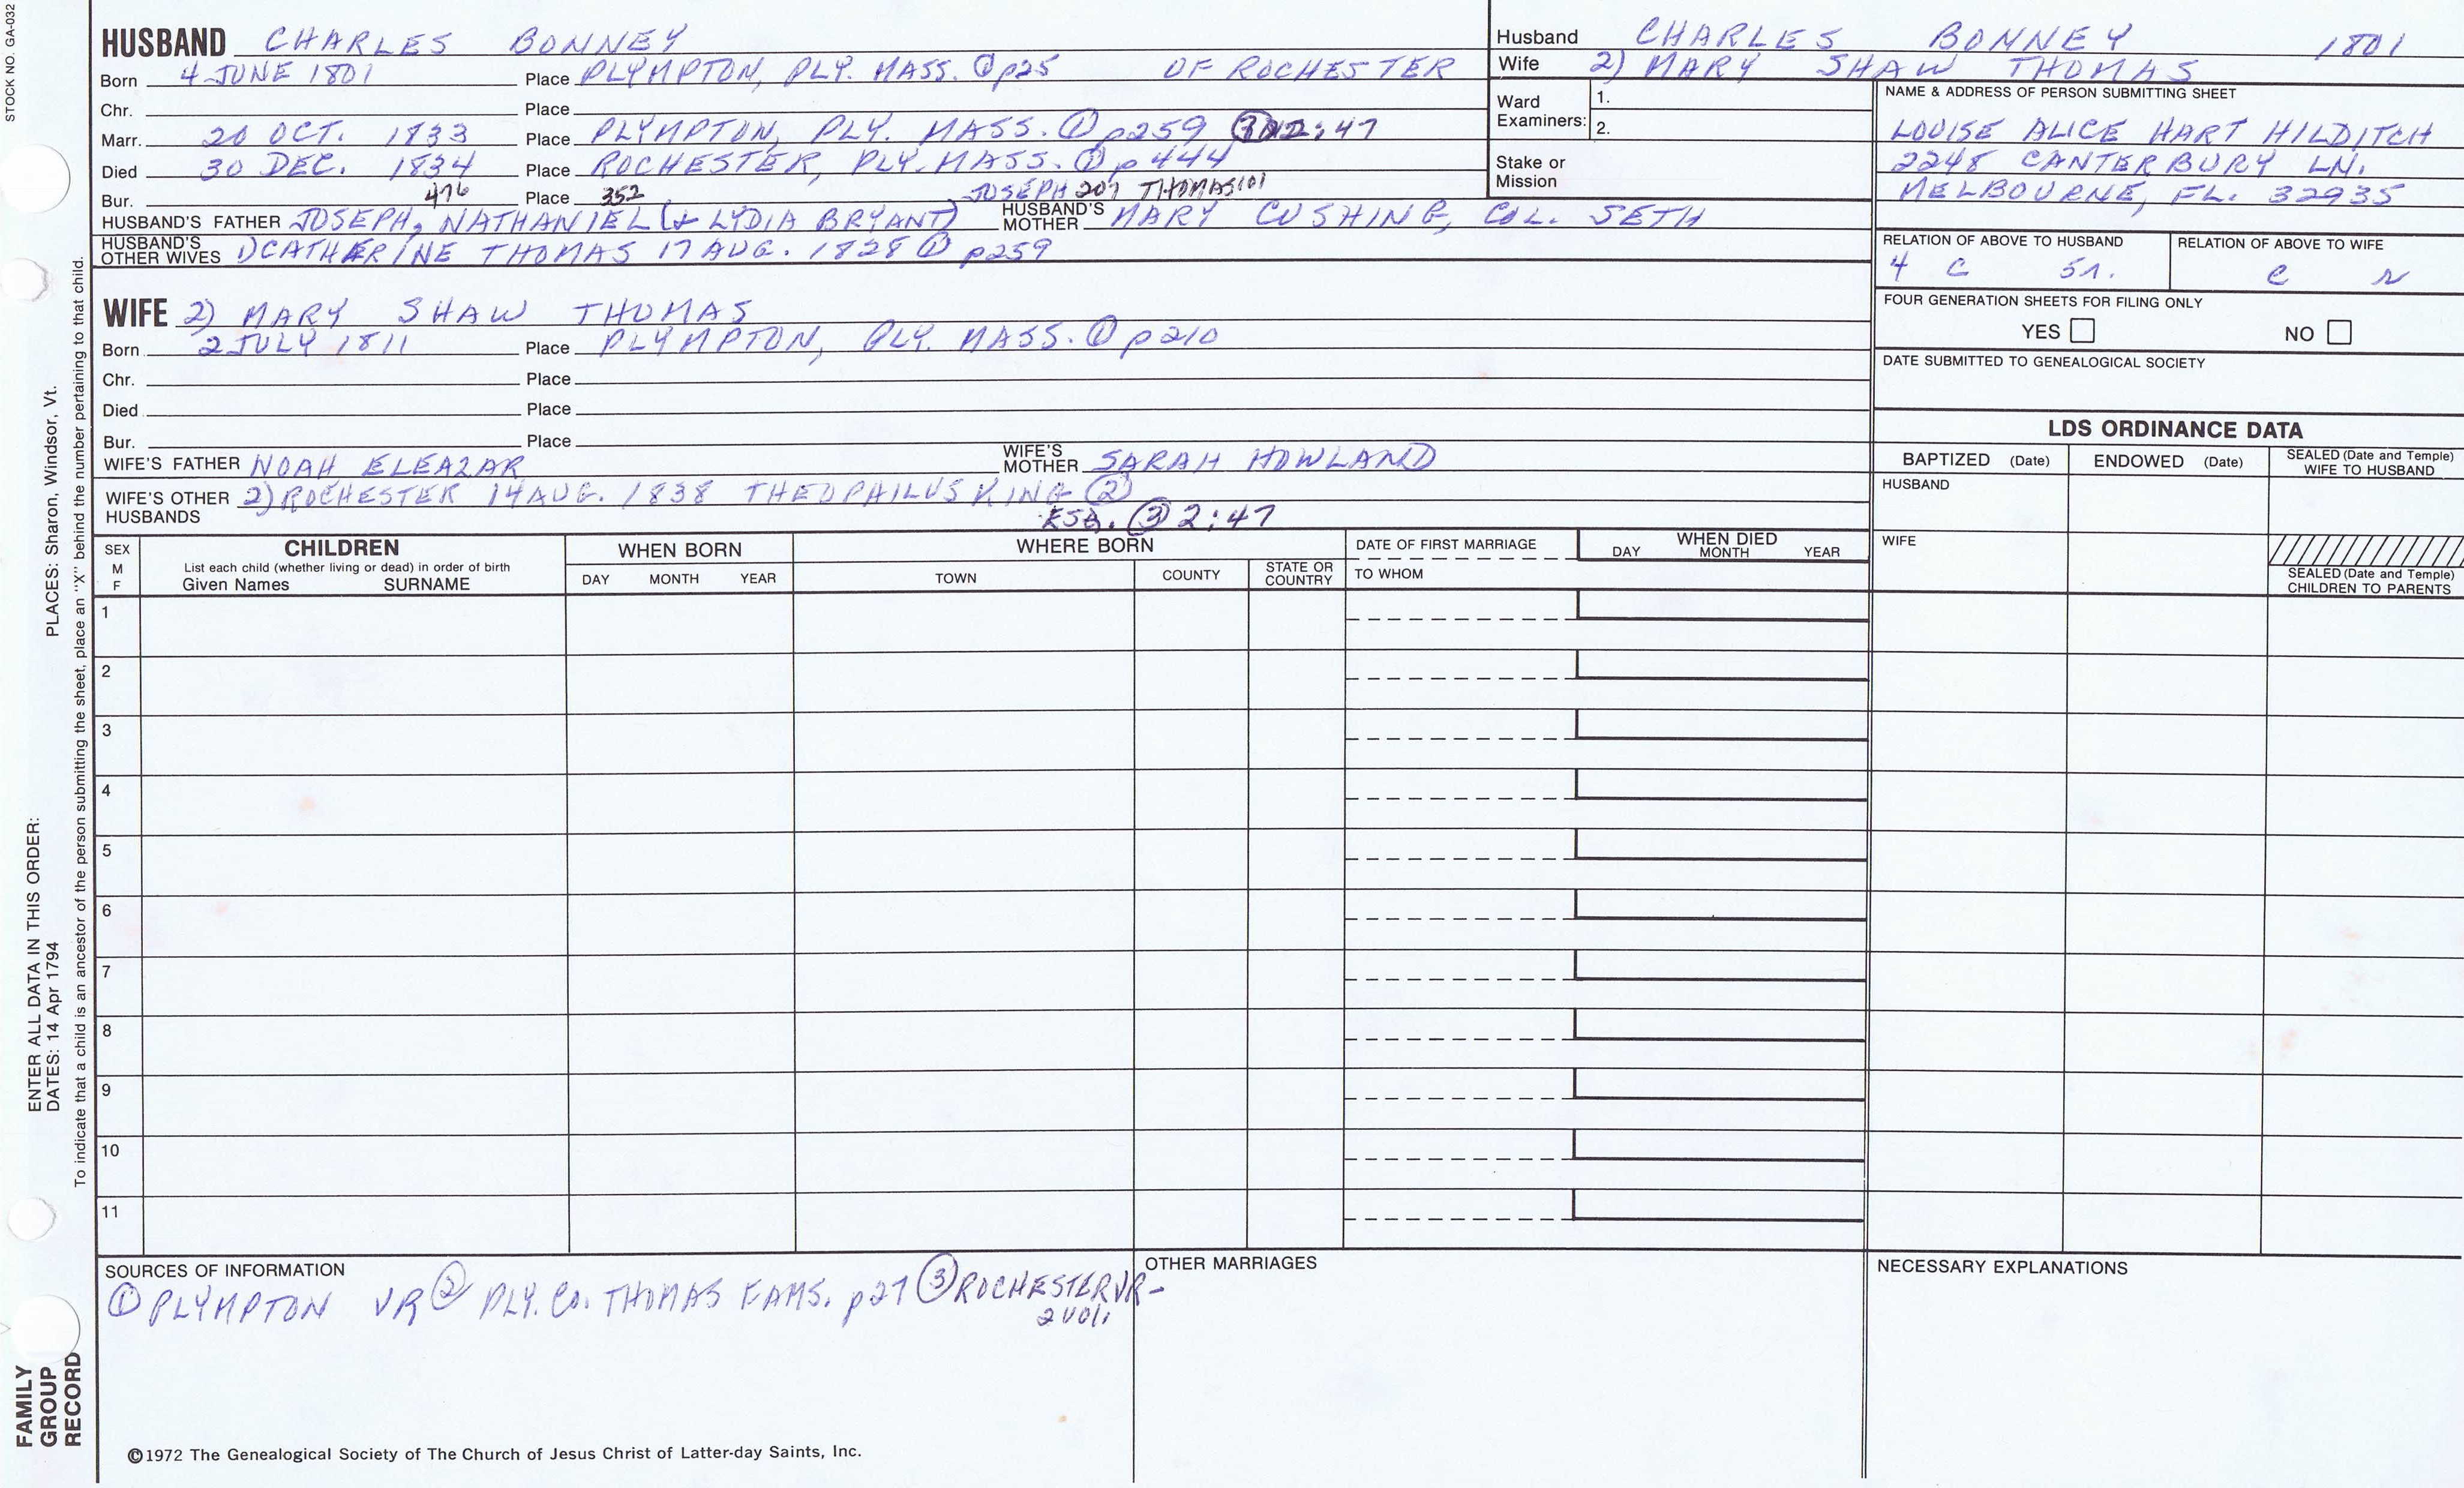 STOCK NO. GA-032
HUSBAND CHARLES BONNEY
Born 4 JUNE 1801 Place PLYMPTON, PLY. MASS. ① p25 OF ROCHESTER
Chr. Place
Marr. 20 OCT. 1833 Place PLYMPTON, PLY. MASS. ① p259 ③ 2:47
Died 30 DEC. 1834 Place ROCHESTER, PLY. MASS. ① p444
Bur. 476 Place 352 JOSEPH 207 THOMAS 101
HUSBAND'S FATHER JOSEPH, NATHANIEL (& LYDIA BRYANT) HUSBAND'S MOTHER MARY CUSHING, COL. SETH
HUSBAND'S OTHER WIVES 1) CATHERINE THOMAS 17 AUG. 1828 ① p259
WIFE 2) MARY SHAW THOMAS
Born 2 JULY 1811 Place PLYMPTON, PLY. MASS. ① p210
Chr. Place
Died Place
Bur. Place
WIFE'S FATHER NOAH ELEAZAR WIFE'S MOTHER SARAH HOWLAND
WIFE'S OTHER HUSBANDS 2) ROCHESTER 14 AUG. 1838 THEOPHILUS KING ②
ESQ. ③ 2:47
Husband CHARLES BONNEY 1801
Wife 2) MARY SHAW THOMAS
Ward Examiners: 1.
2.
Stake or Mission
NAME & ADDRESS OF PERSON SUBMITTING SHEET
LOUISE ALICE HART HILDITCH
2248 CANTERBURY LN.
MELBOURNE, FL. 32935
RELATION OF ABOVE TO HUSBAND RELATION OF ABOVE TO WIFE
4 C
FOUR GENERATION SHEETS FOR FILING ONLY
YES NO
DATE SUBMITTED TO GENEALOGICAL SOCIETY
LDS ORDINANCE DATA
BAPTIZED (Date) ENDOWED (Date) SEALED (Date and Temple) WIFE TO HUSBAND
HUSBAND
WIFE
SEALED (Date and Temple) CHILDREN TO PARENTS
SEX M F
CHILDREN
List each child (whether living or dead) in order of birth
Given Names SURNAME
WHEN BORN
DAY MONTH YEAR
WHERE BORN
TOWN COUNTY STATE OR COUNTRY
DATE OF FIRST MARRIAGE
TO WHOM
WHEN DIED
DAY MONTH YEAR
1
2
3
4
5
6
7
8
9
10
11
SOURCES OF INFORMATION
① PLYMPTON VR ② PLY. CO. THOMAS FAMS. p27 ③ ROCHESTER VR-
2 vol.
OTHER MARRIAGES
NECESSARY EXPLANATIONS
©1972 The Genealogical Society of The Church of Jesus Christ of Latter-day Saints, Inc.
FAMILY
GROUP
RECORD
ENTER ALL DATA IN THIS ORDER:
DATES: 14 Apr 1794 PLACES: Sharon, Windsor, Vt.
To indicate that a child is an ancestor of the person submitting the sheet, place an "X" behind the number pertaining to that child.